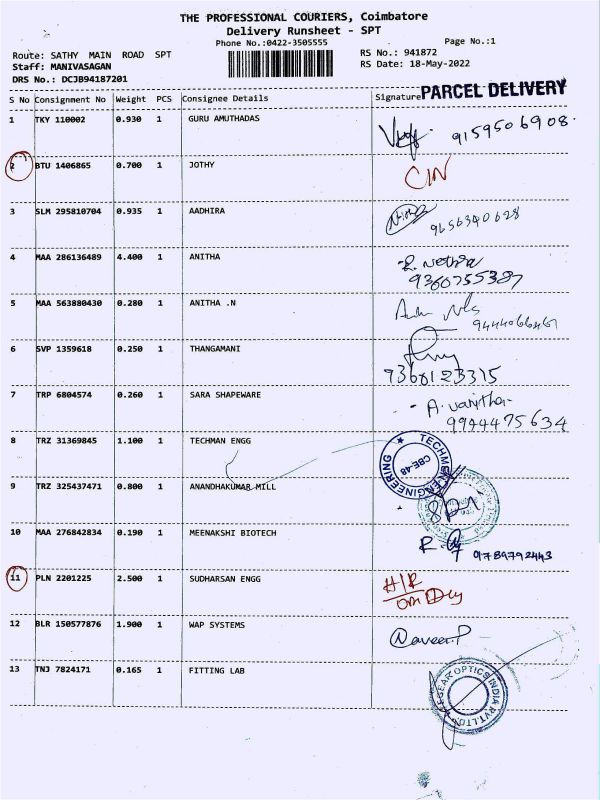 THE PROFESSIONAL COURIERS, Coimbatore
Delivery Runsheet - SPT
Phone No.:0422-3505555 Page No.:1
Route: SATHY MAIN ROAD SPT RS No.: 941872
Staff: MANIVASAGAN RS Date: 18-May-2022
DRS No.: DCJB94187201
PARCEL DELIVERY
S No Consignment No Weight PCS Consignee Details Signature
1 TKY 110002 0.930 1 GURU AMUTHADAS 9159506908
2 BTU 1406865 0.700 1 JOTHY CIN
3 SLM 295810704 0.935 1 AADHIRA 9656340628
4 MAA 286136489 4.400 1 ANITHA R. Nethra
9360755387
5 MAA 563880430 0.280 1 ANITHA .N
9444066461
6 SVP 1359618 0.250 1 THANGAMANI
9368123315
7 TRP 6804574 0.260 1 SARA SHAPEWARE A. vanitha
9944475634
8 TRZ 31369845 1.100 1 TECHMAN ENGG
TECHMEN ENGINEERING
CBE-48
9 TRZ 325437471 0.800 1 ANANDHAKUMAR MILL
10 MAA 276842834 0.190 1 MEENAKSHI BIOTECH 9789792443
11 PLN 2201225 2.500 1 SUDHARSAN ENGG H/R
12 BLR 150577876 1.900 1 WAP SYSTEMS Naveen.P
13 TNJ 7824171 0.165 1 FITTING LAB
OPTICS INDIA PVT LTD